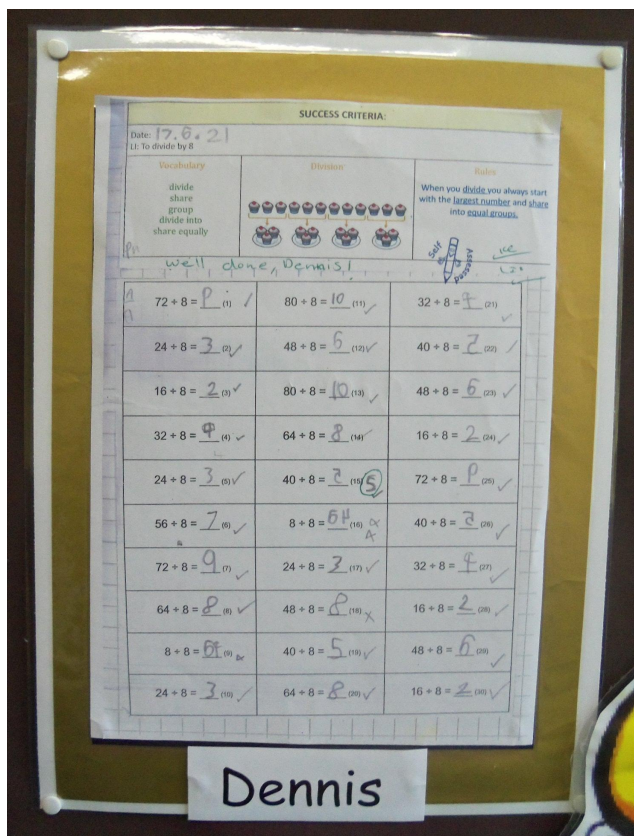 SUCCESS CRITERIA:
Date: 17.6.21
LI: To divide by 8
Vocabulary
divide
share
group
divide into
share equally
Division
Rules
When you divide you always start
with the largest number and share
into equal groups.
Self
assessed
Well done, Dennis!
72 ÷ 8 = P (1) 80 ÷ 8 = 10 (11) 32 ÷ 8 = 4 (21)
24 ÷ 8 = 3 (2) 48 ÷ 8 = 6 (12) 40 ÷ 8 = 5 (22)
16 ÷ 8 = 2 (3) 80 ÷ 8 = 10 (13) 48 ÷ 8 = 6 (23)
32 ÷ 8 = 4 (4) 64 ÷ 8 = 8 (14) 16 ÷ 8 = 2 (24)
24 ÷ 8 = 3 (5) 40 ÷ 8 = (15) 5 72 ÷ 8 = P (25)
56 ÷ 8 = 7 (6) 8 ÷ 8 = 64 (16) 40 ÷ 8 = (26)
72 ÷ 8 = 9 (7) 24 ÷ 8 = 3 (17) 32 ÷ 8 = 4 (27)
64 ÷ 8 = 8 (8) 48 ÷ 8 = 8 (18) 16 ÷ 8 = 2 (28)
8 ÷ 8 = 64 (9) 40 ÷ 8 = 5 (19) 48 ÷ 8 = 6 (29)
24 ÷ 8 = 3 (10) 64 ÷ 8 = 8 (20) 16 ÷ 8 = 2 (30)
Dennis